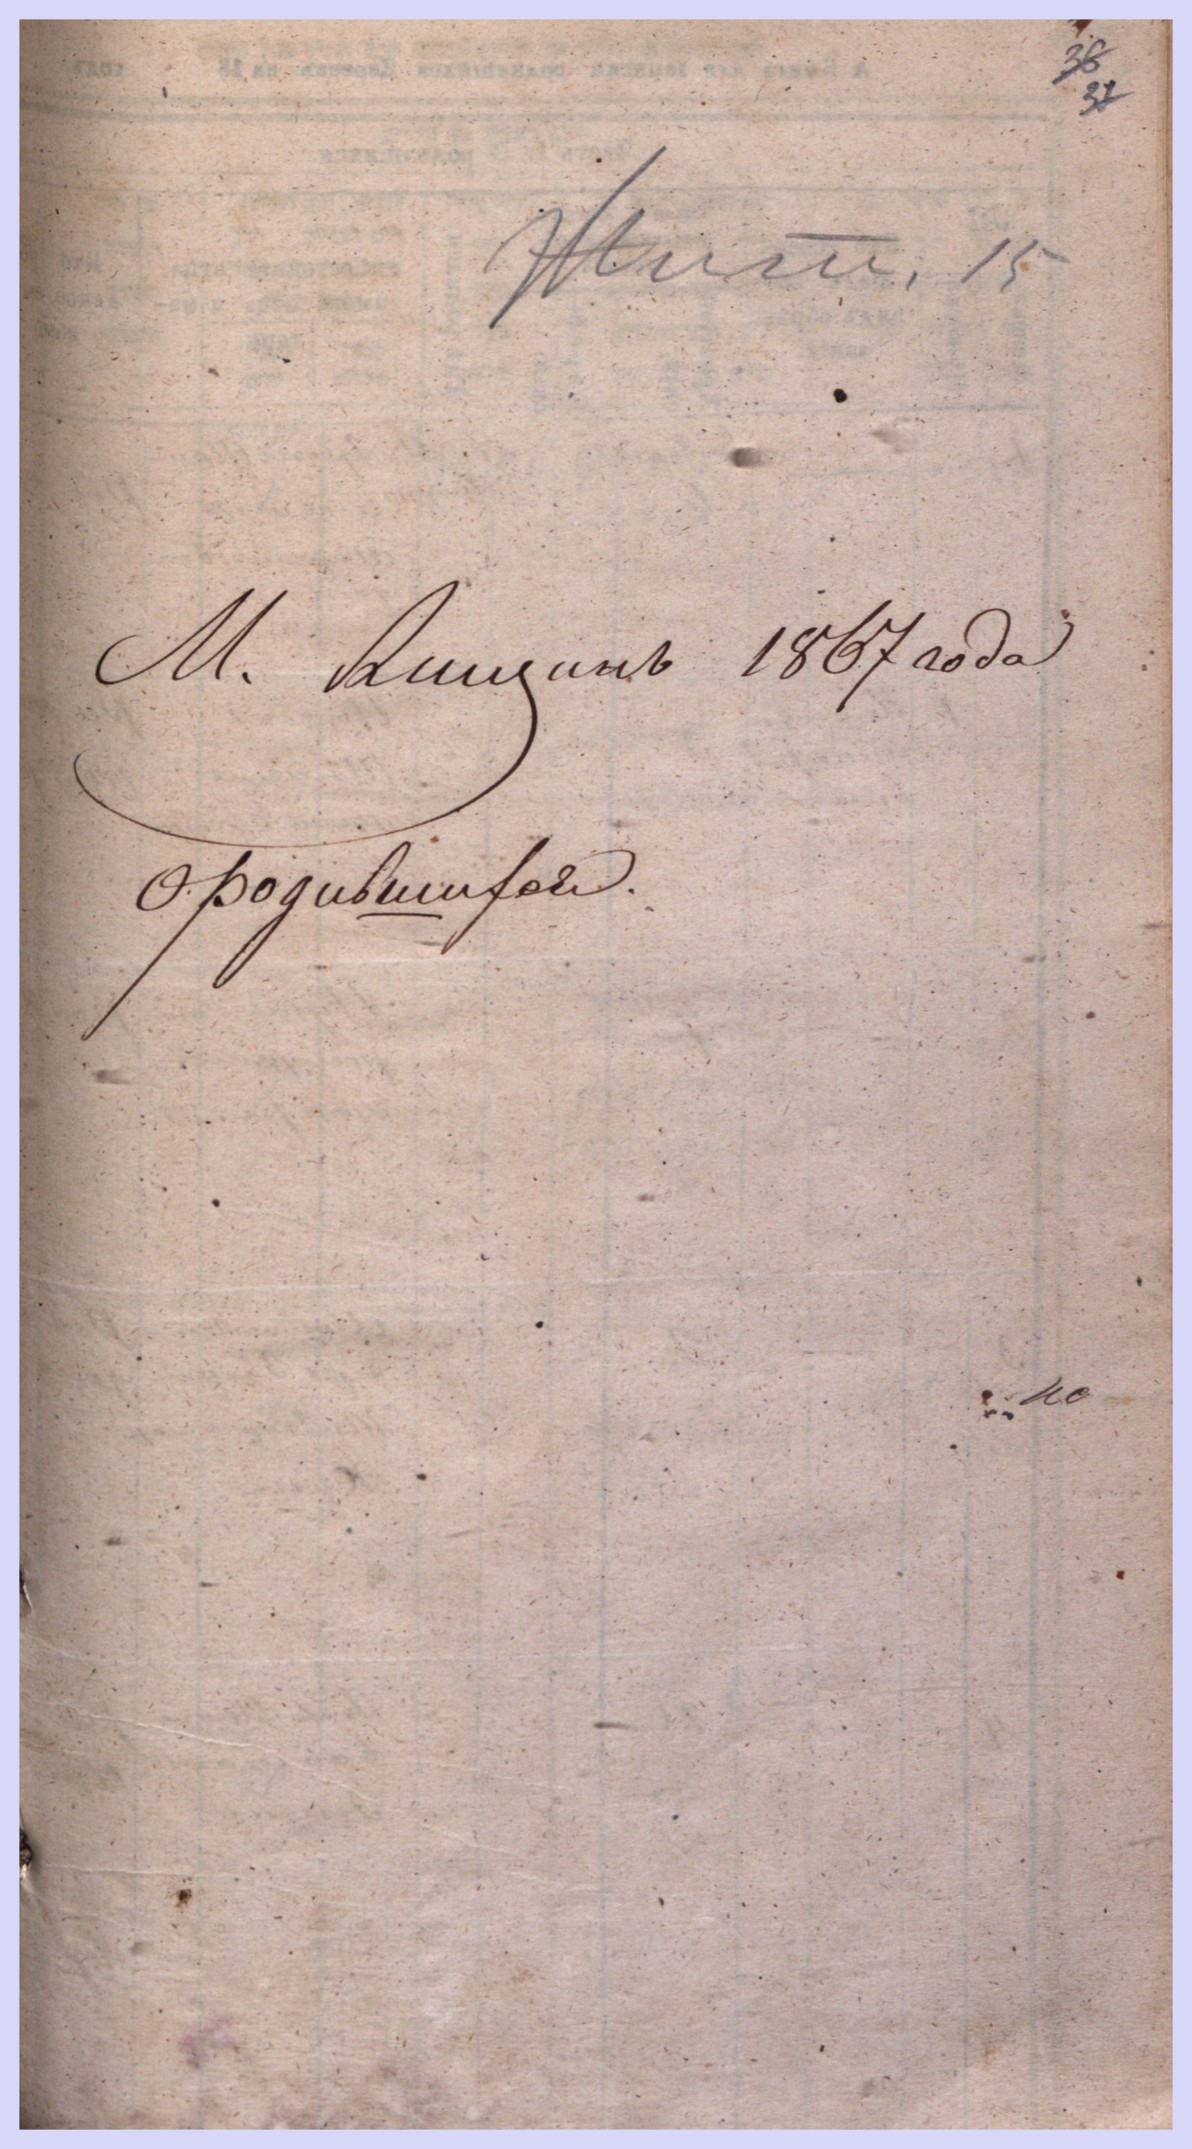 36
37
Жит. 15
М. Кищинъ 1867 года
О родившихся.